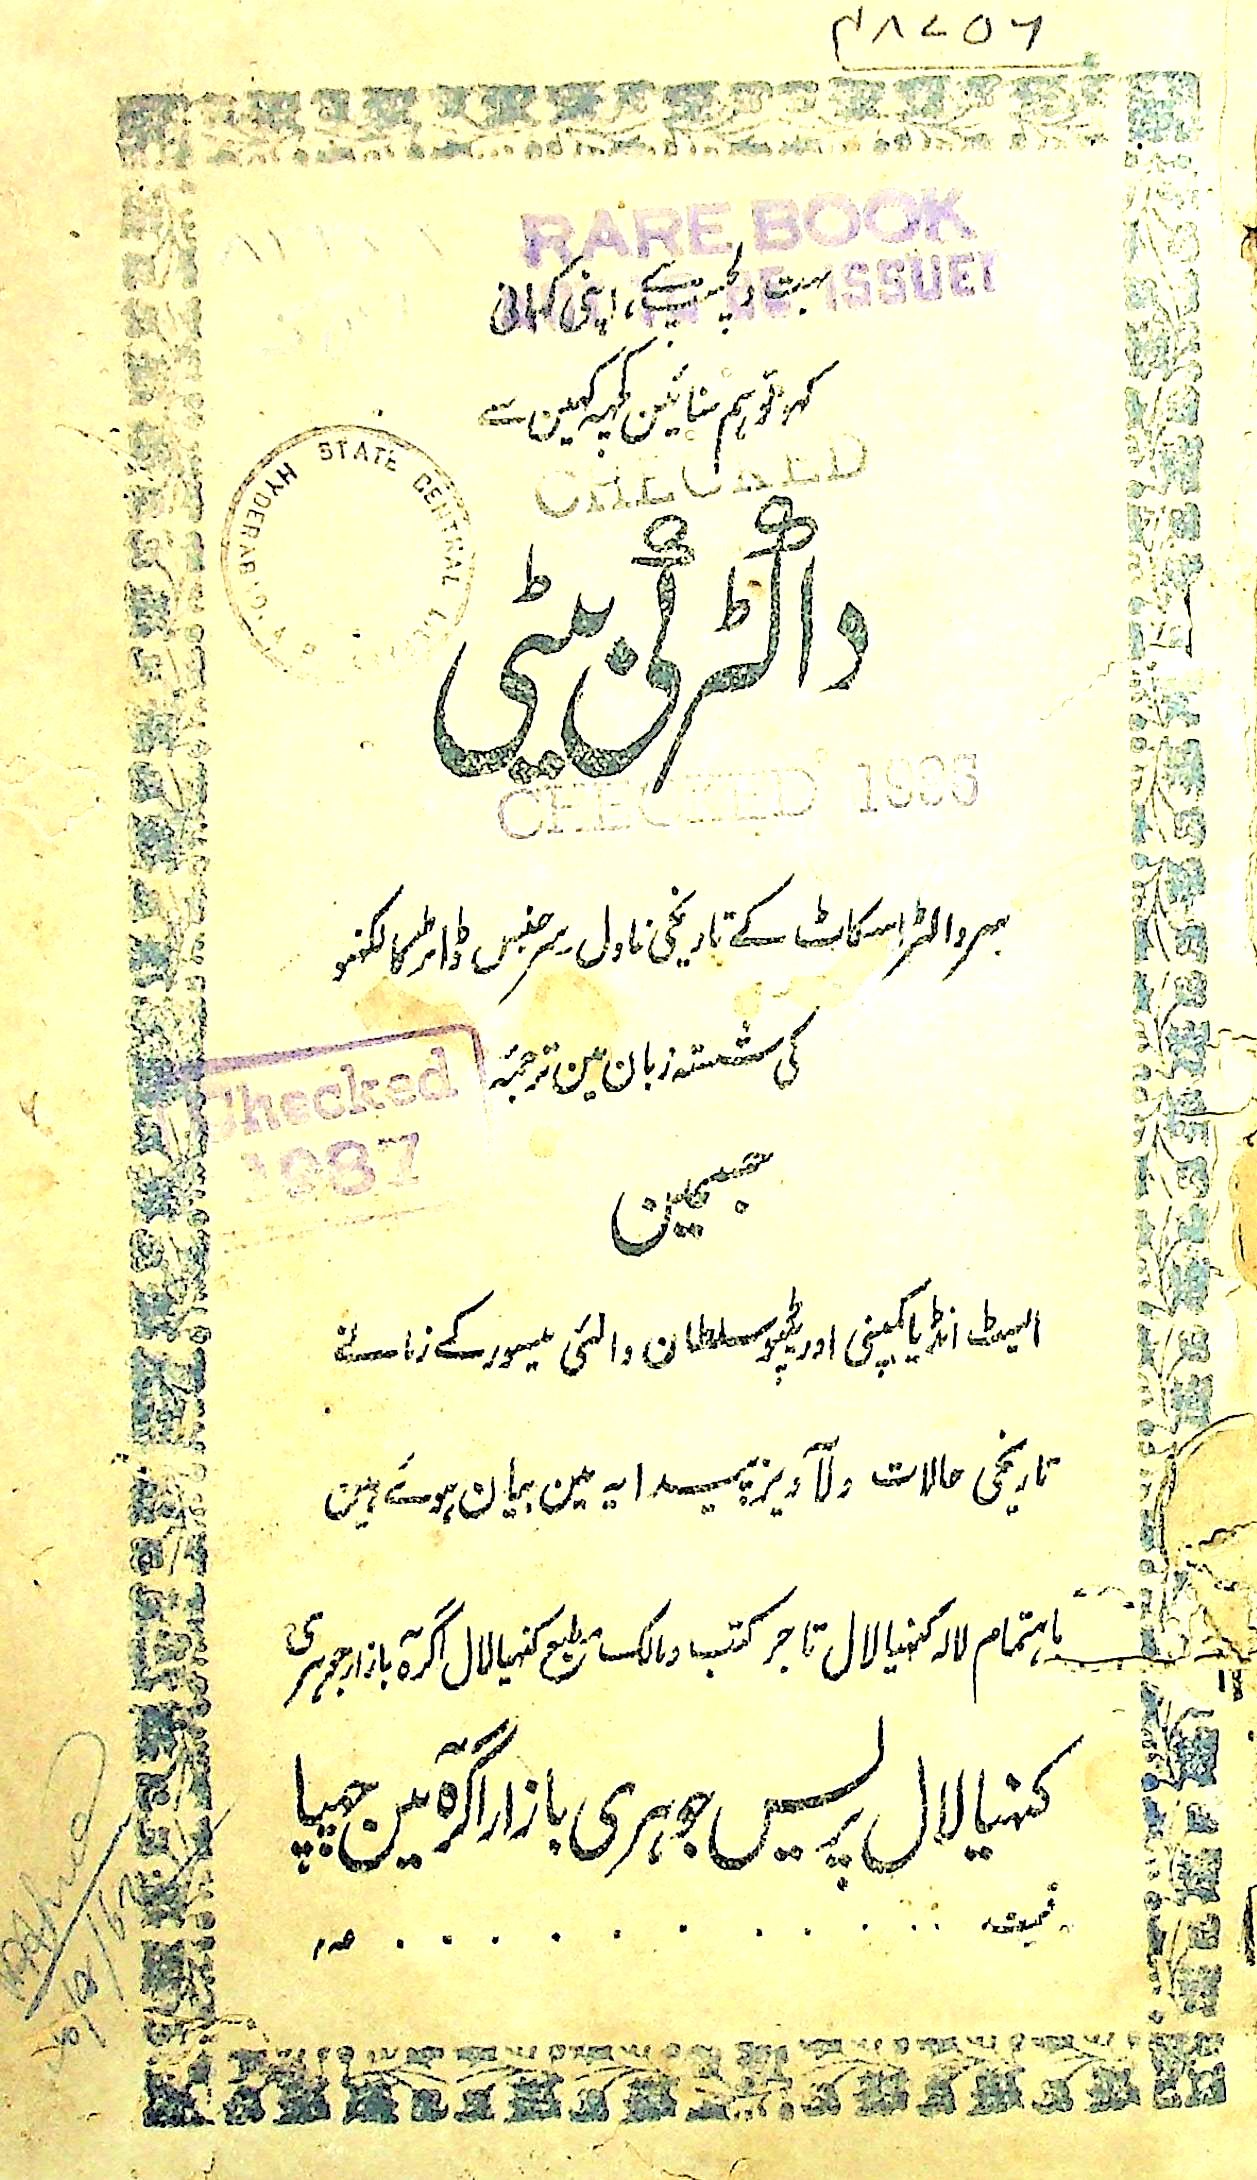 ۴۸۷۵۶
RARE BOOK
ISSUED
بہت دلچسپ ہے، اپنی کہانی
کہو تو ہم سنائین کہین کہین سے
CHECKED
HYDERABAD STATE CENTRAL
CHECKED 1996
سر والٹر اسکاٹ کے تاریخی ناول سرجنس ڈاٹر کا لکھنو
کی شستہ زبان مین ترجمہ
Checked
1987
جسمین
ایسٹ انڈیا کمپنی اور ٹیپو سلطان والئی میسور کے زمانے
تاریخی حالات دلآویز پیرایہ مین بیان ہوئے ہین
باہتمام لالہ کنہیا لال تاجر کتب و مالک مطبع کنہیا لال آگرہ بازار جوہری
کنہیا لال پریس جوہری بازار آگرہ مین چھپا
قیمت . . . . . . . . . .